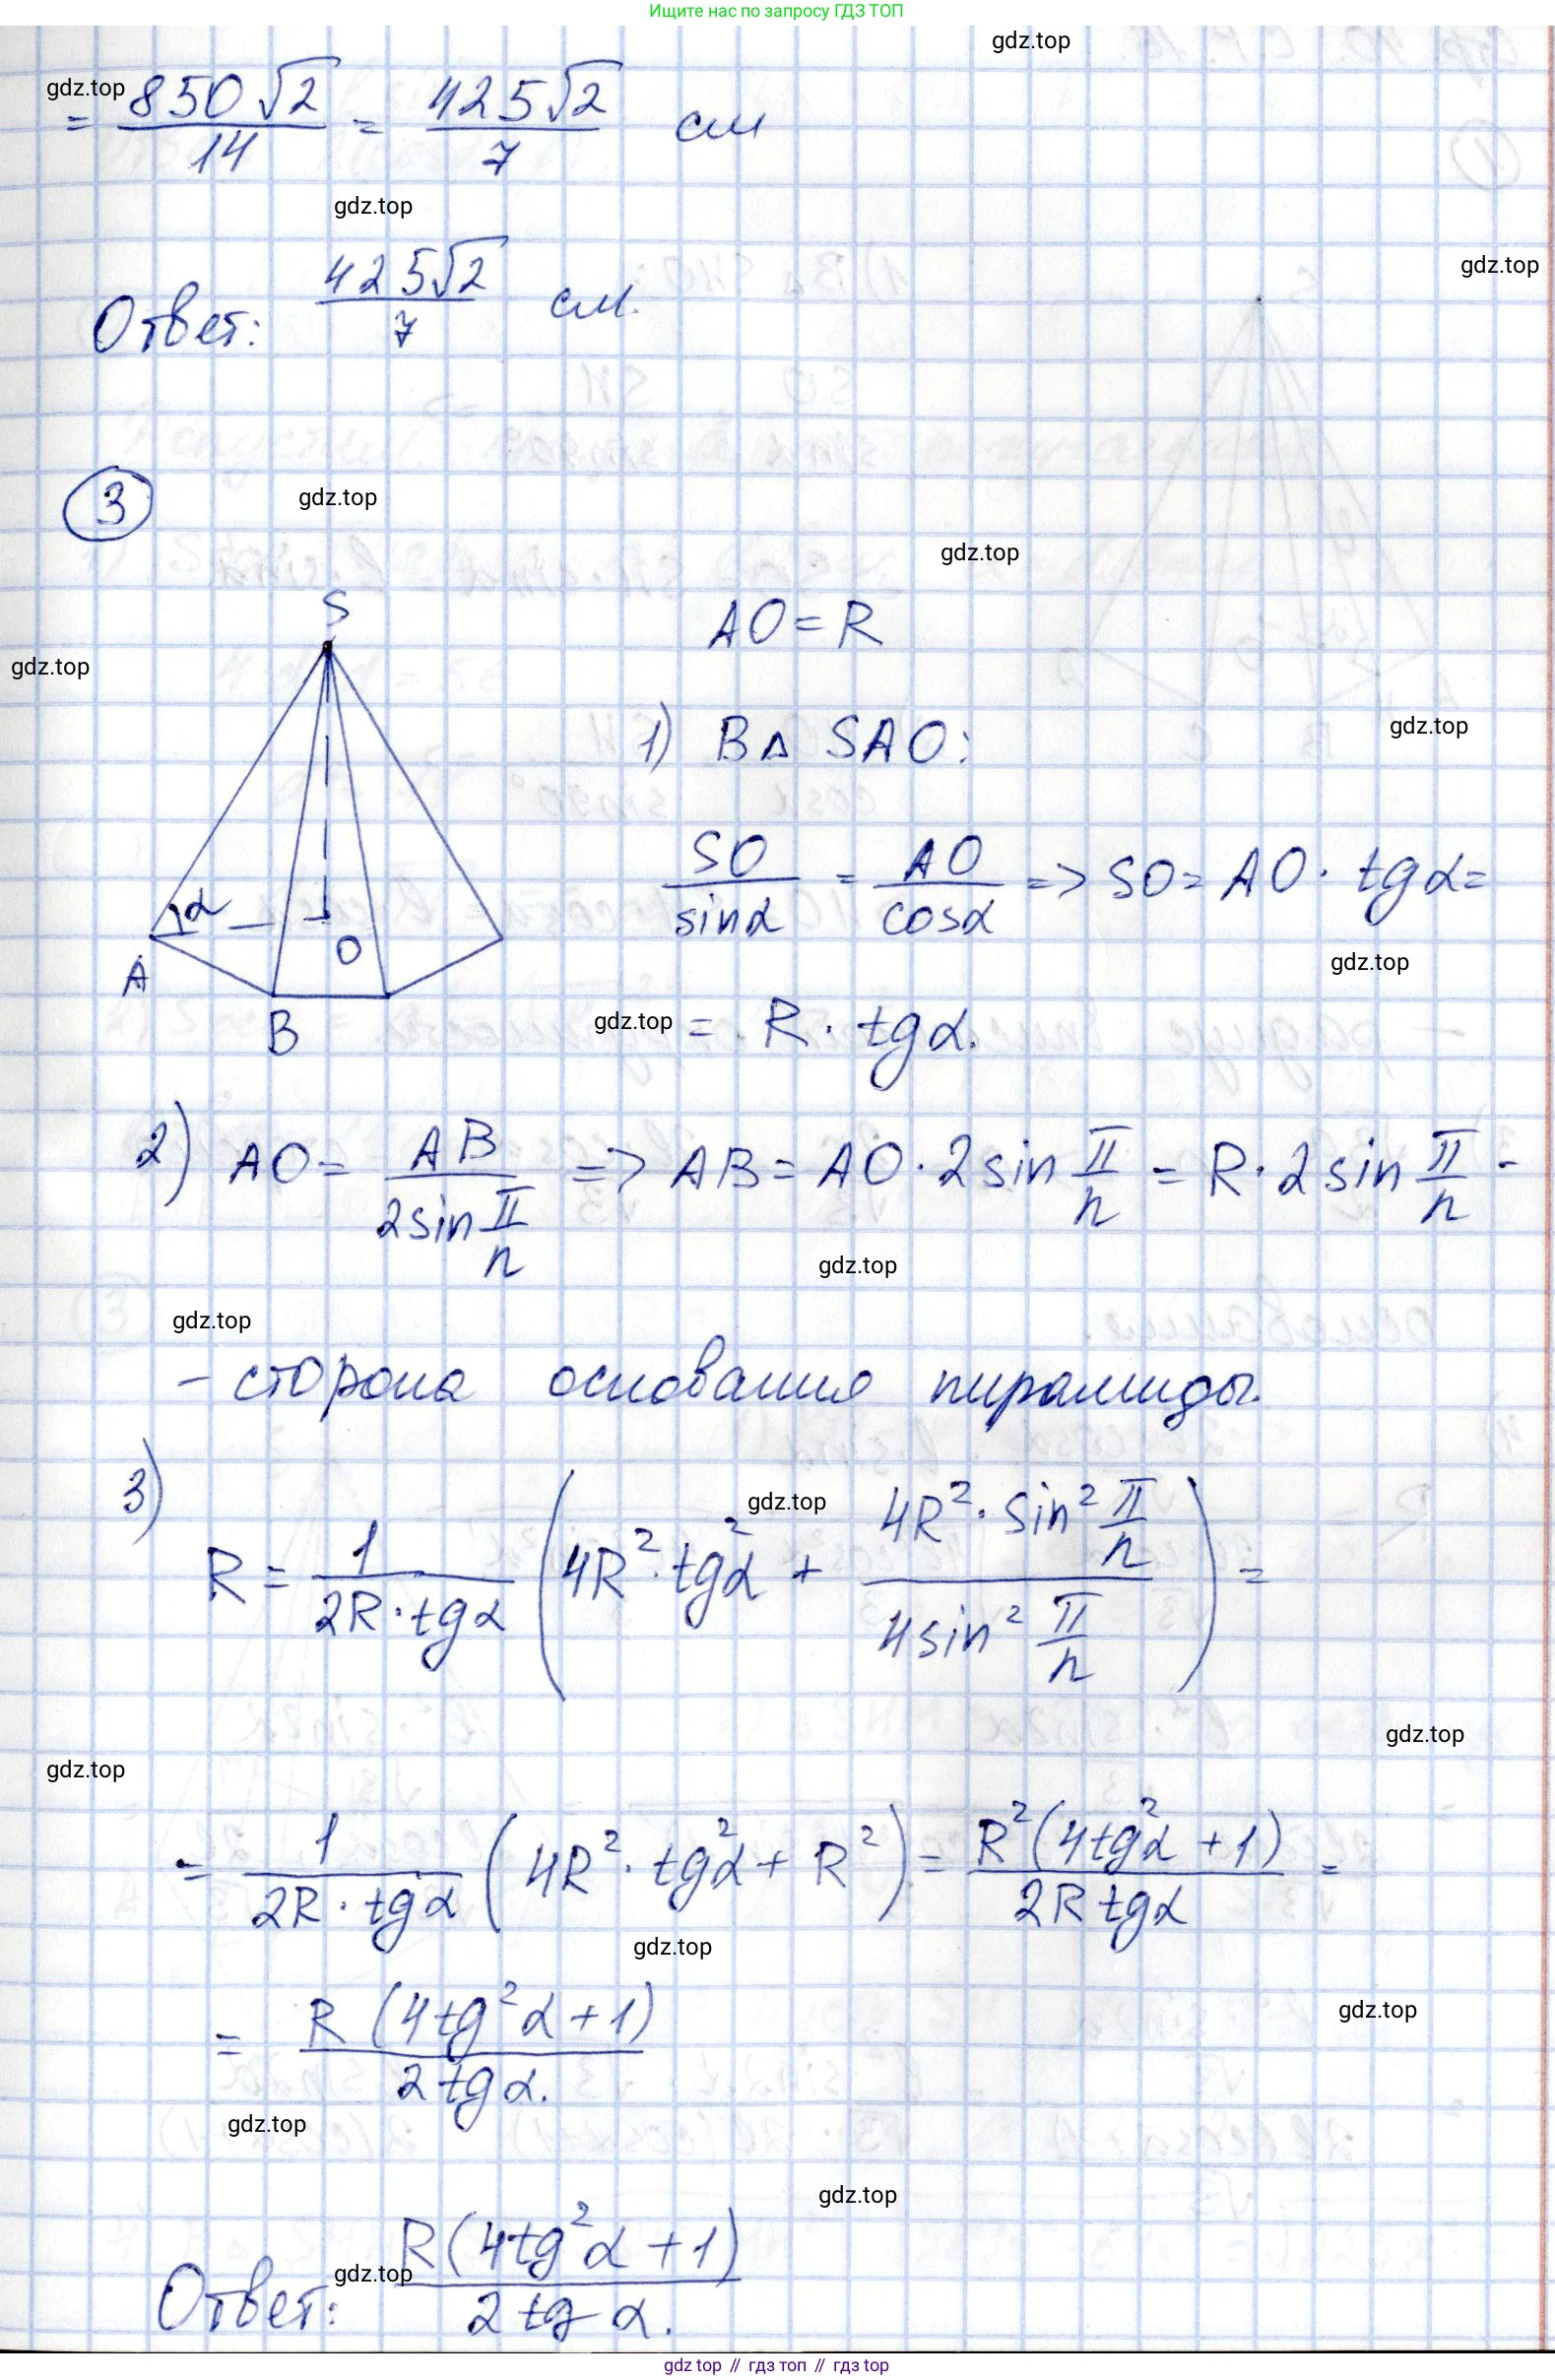 Ищите нас по запросу ГДЗ ТОП
gdz.top
gdz.top
= 850√2/14 = 425√2/7 см
gdz.top
gdz.top
Ответ: 425√2/7 см.
3
gdz.top
gdz.top
S
AO = R
gdz.top
1) В △ SAO:
gdz.top
SO/sinα = AO/cosα => SO = AO · tgα =
α
O
A
gdz.top
B
gdz.top = R · tgα.
2) AO = AB/(2sin π/n) => AB = AO · 2sin π/n = R · 2sin π/n -
gdz.top
gdz.top
- сторона основания пирамиды.
3)
gdz.top
R = 1/(2R · tgα) (4R² · tg²α + (4R² · sin² π/n)/(4sin² π/n)) =
gdz.top
gdz.top
= 1/(2R · tgα) (4R² · tg²α + R²) = R²(4tg²α + 1)/(2R tgα) =
gdz.top
= R(4tg²α + 1)/(2tgα).
gdz.top
gdz.top
gdz.top
Ответ: R(4tg²α + 1)/(2tgα).
gdz.top
gdz top // гдз топ // гдз top